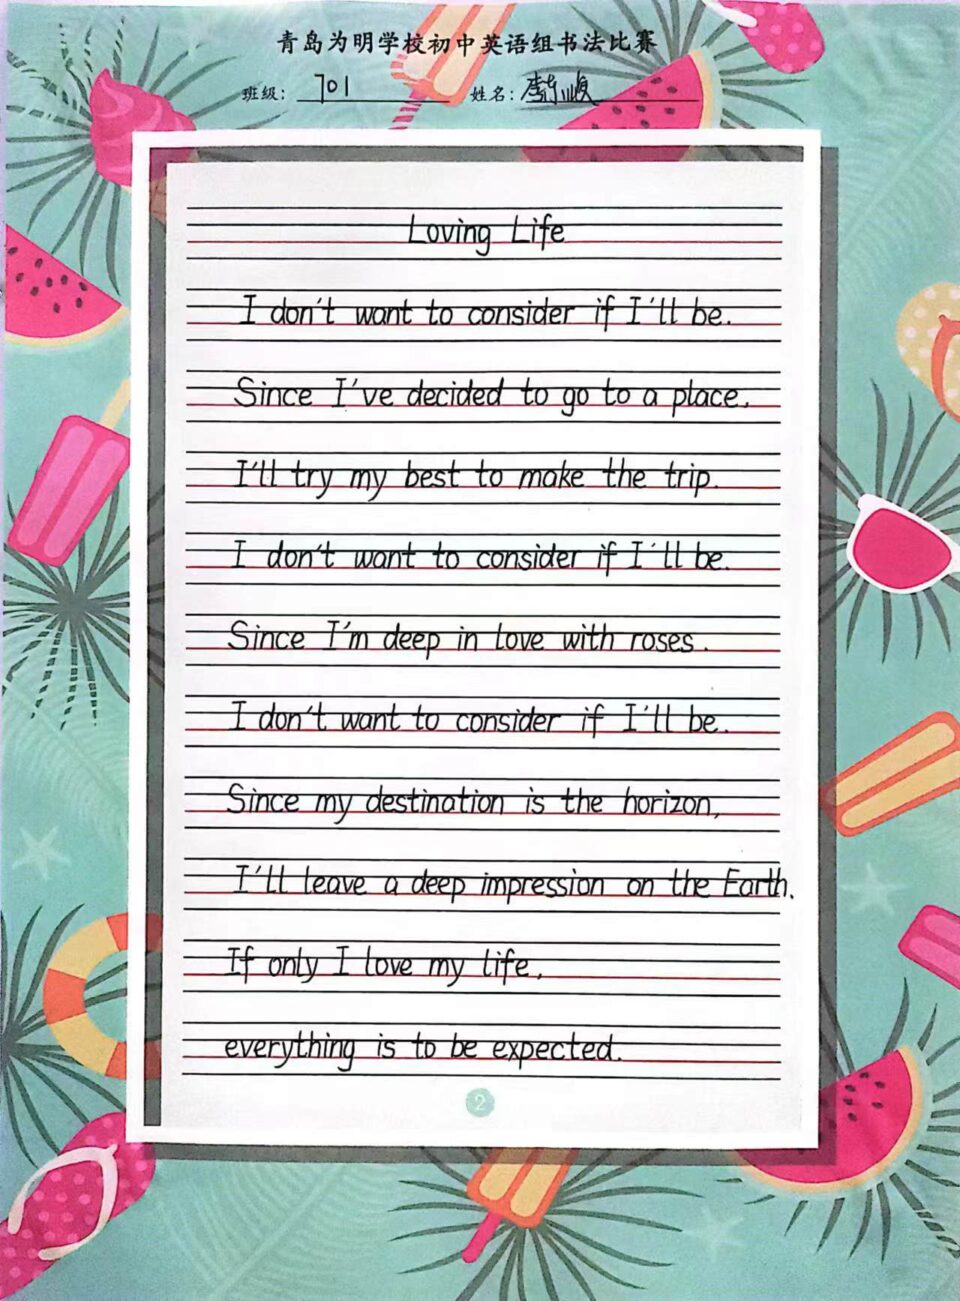 青岛为明学校初中英语组书法比赛
班级: 701 姓名: 李
Loving Life
I don't want to consider if I'll be.
Since I've decided to go to a place,
I'll try my best to make the trip.
I don't want to consider if I'll be.
Since I'm deep in love with roses.
I don't want to consider if I'll be.
Since my destination is the horizon,
I'll leave a deep impression on the Earth.
If only I love my life,
everything is to be expected.
2